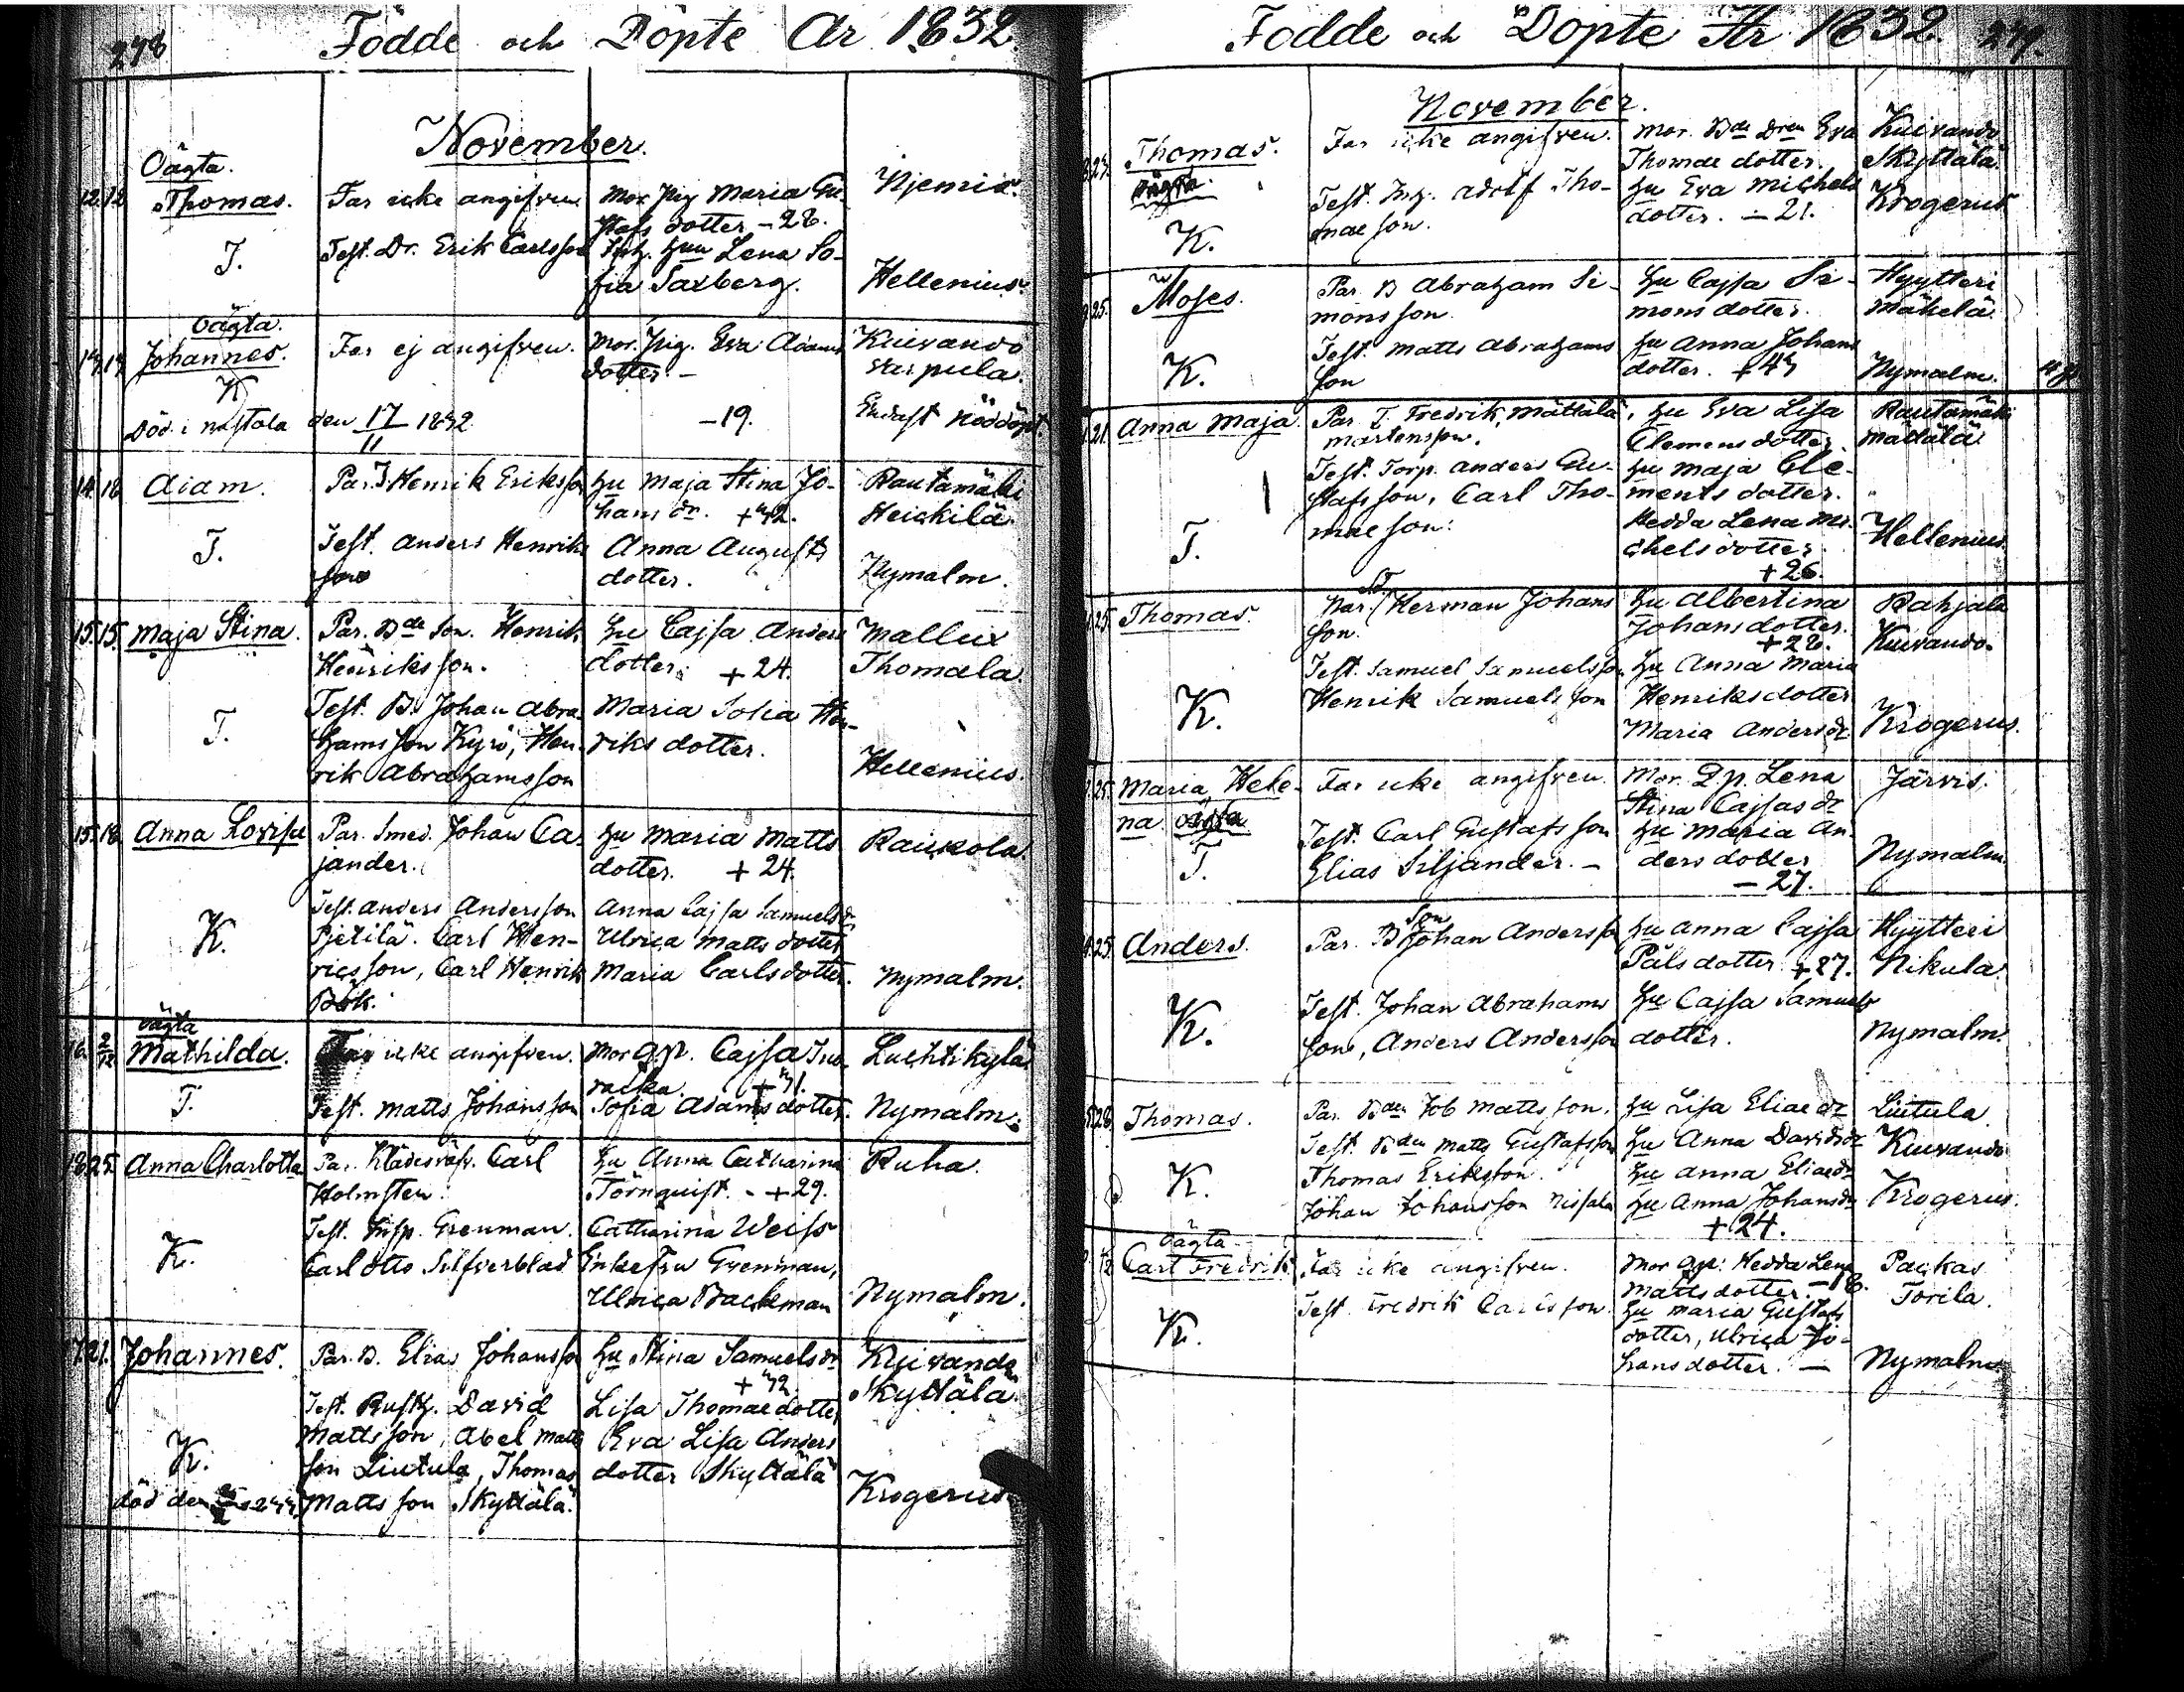 278
Födde och Döpte År 1832.
November.
Oägta.
12. 18. Thomas. Far icke angifven Mor Pig Maria Gu- Njemis.
stafs dotter - 28.
T. Test. Dr. Erik Carlsson Hu Lena So-
fia Saxberg. Hellenius.
Oägta.
Johannes. Far ej angifven. Mor. Pig. Eva Adams Kuivando
K dotter. - Varpula.
Död i Nastola den 17/11 1832 - 19. Endast nöddöpt.
14. 18 Adam. Par. T Henrik Eriksson Hu Maja Stina Jo- Rautamäki
hans dr. + 42. Heickilä.
T. Test. Anders Henriks Anna Augusts
son dotter. Nymalm.
15. 15. Maja Stina. Par. Bde Son. Henrik Hu Cajsa Anders Mallux
Henriksson. dotter. + 24. Thomala.
Test. B. Johan Abra- Maria Sofia Hen-
T. hamsson Kyrö, Hen- riks dotter.
rik Abrahamsson Hellenius.
15. 18 Anna Lovisa Par. Smed. Johan Ca- Hu Maria Matts Raickola.
jander. dotter. + 24.
Test. Anders Andersson Anna Cajsa Samuelsdr
K. Pjetilä. Carl Hen- Ulrica Matts dotter
ricsson, Carl Henrik Maria Carlsdotter. Nymalm.
Bök.
Oägta
16. 2/12 Mathilda. Far icke angifven. Mor Gp. Cajsa Luchtikylä
+ 41.
T. Test. Matts Johansson Sofia Adams dotter. Nymalm.
18. 25. Anna Charlotta Par. Klädesväfv. Carl Hu Anna Catharina Ruha.
Holmsten. Törnquist. - + 29.
Test. Insp. Grenman. Catharina Weiss
K. Carl Otto Silfverblad Enkefru Grenman,
Ulrica Backman Nymalm.
17. 21. Johannes. Par. B. Elias Johansson Hu Stina Samuelsdr Kuivando
+ 42. Skyttälä.
Test. Rusth. David Lisa Thomae dotter
Mattsson, Abel Matts Eva Lisa Anders
K. son Liutula, Thomas dotter Skyttälä
död den Mattsson Skyttälä. Krogerus
Födde och Döpte År 1832. 279.
November.
Thomas. Far icke angifven. Mor. Bde Dren Eva Kuivando
oägta. Thomae dotter. Skyttälä.
Test. Inh. Adolf Tho- Hu Eva Michels Krogerus
K. mae son. dotter. - 21.
25. Moses. Par. B Abraham Si- Hu Cajsa Si- Hyytteri
monsson. mons dotter. Mäkelä.
Test. Matts Abrahams Hu Anna Johans
K. son dotter. + 43 Nymalm.
21. Anna Maja. Par. T. Fredrik Mattälä, Hu Eva Lisa Rautamäki
Mårtensson. Clemens dotter. Mattälä
Test. Torp. Anders Gu- Hu Maja Cle-
stafsson, Carl Tho- ments dotter.
T. maeson. Hedda Lena Mi- Hellenius.
chels dotter.
+ 26.
25. Thomas. Par. Herman Johans Hu Albertina Rahjala
son. Johans dotter. Kuivando.
+ 28.
Test. Samuel Samuelsson Hu Anna Maria
K. Henrik Samuelsson Henriksdotter
Maria Andersdr Krogerus.
25. Maria Hele- Far icke angifven. Mor. Dp. Lena Järvis.
na. oägta Stina Cajsas dr
Test. Carl Gustafsson Hu Maria An-
T. Elias Siljander. - ders dotter Nymalm.
- 27.
25. Anders. Par. B Son Johan Andersson Hu Anna Cajsa Hyytteri
Påls dotter + 27. Nikula.
Test. Johan Abrahams Hu Cajsa Samuels
K. son, Anders Andersson dotter. Nymalm.
28. Thomas. Par. Bden Job Mattsson. Hu Lisa Eliae dr Liutula
Test. Bden Matts Gustafsson Hu Anna Davidsdr Kuivando
K. Thomas Eriksson Hu Anna Eliaedr
Johan Johansson Nissala Hu Anna Johansdr Krogerus.
+ 24.
oägta
Carl Fredrik. Far icke angifven. Mor Gp. Hedda Lena Packas
Matts dotter. - 18. Torila.
Test. Fredrik Carlsson. Hu Maria Gustafs
K. dotter, Ulrica Jo-
hans dotter. - Nymalm